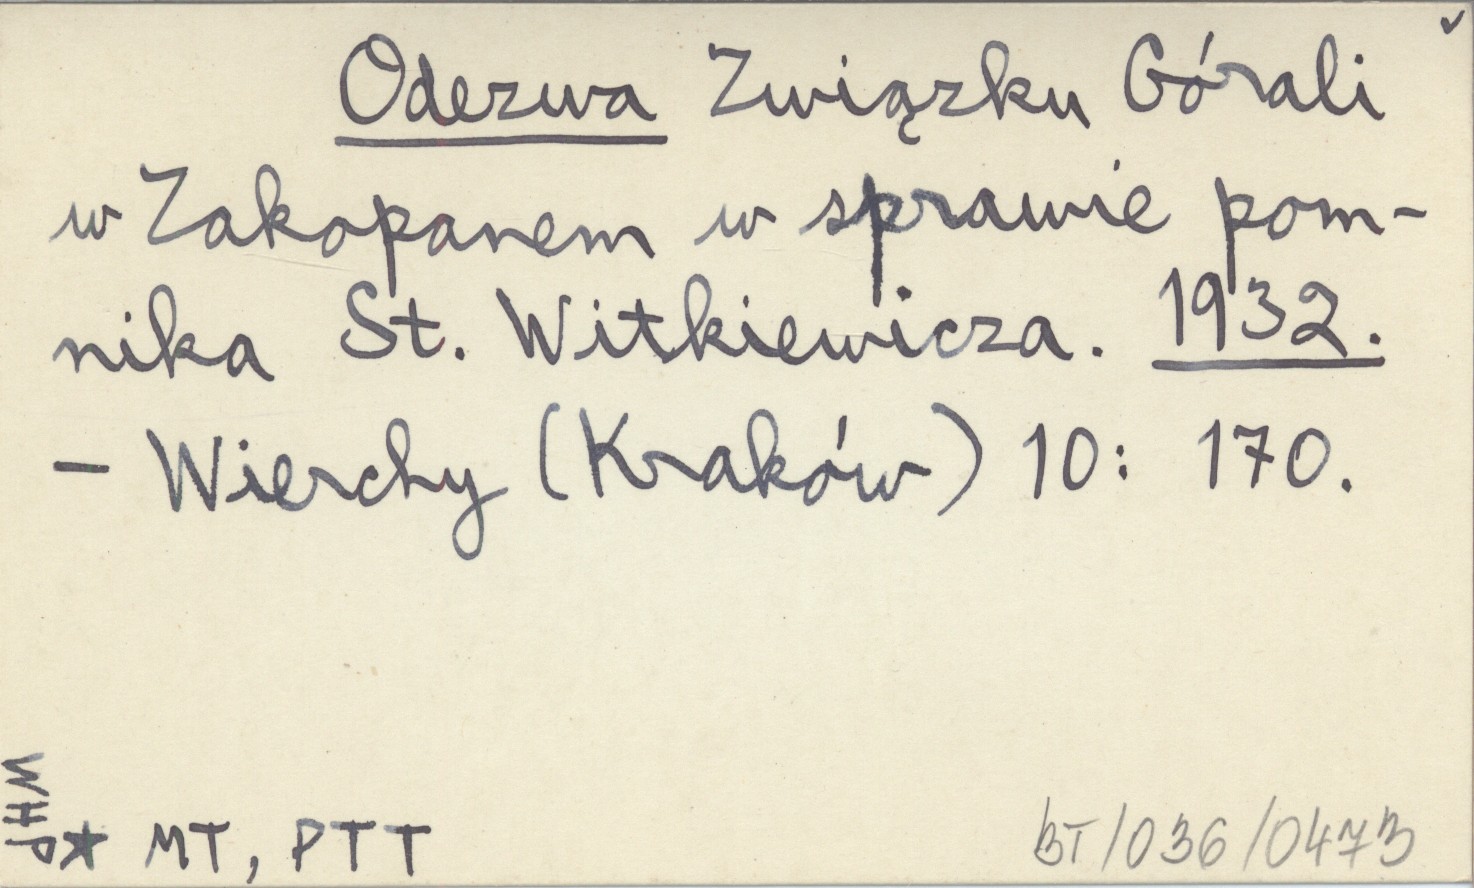 Odezwa Związku Górali
w Zakopanem w sprawie pom-
nika St. Witkiewicza. 1932.
- Wierchy (Kraków) 10: 170.
WHP
* MT, PTT
BT/036/0473